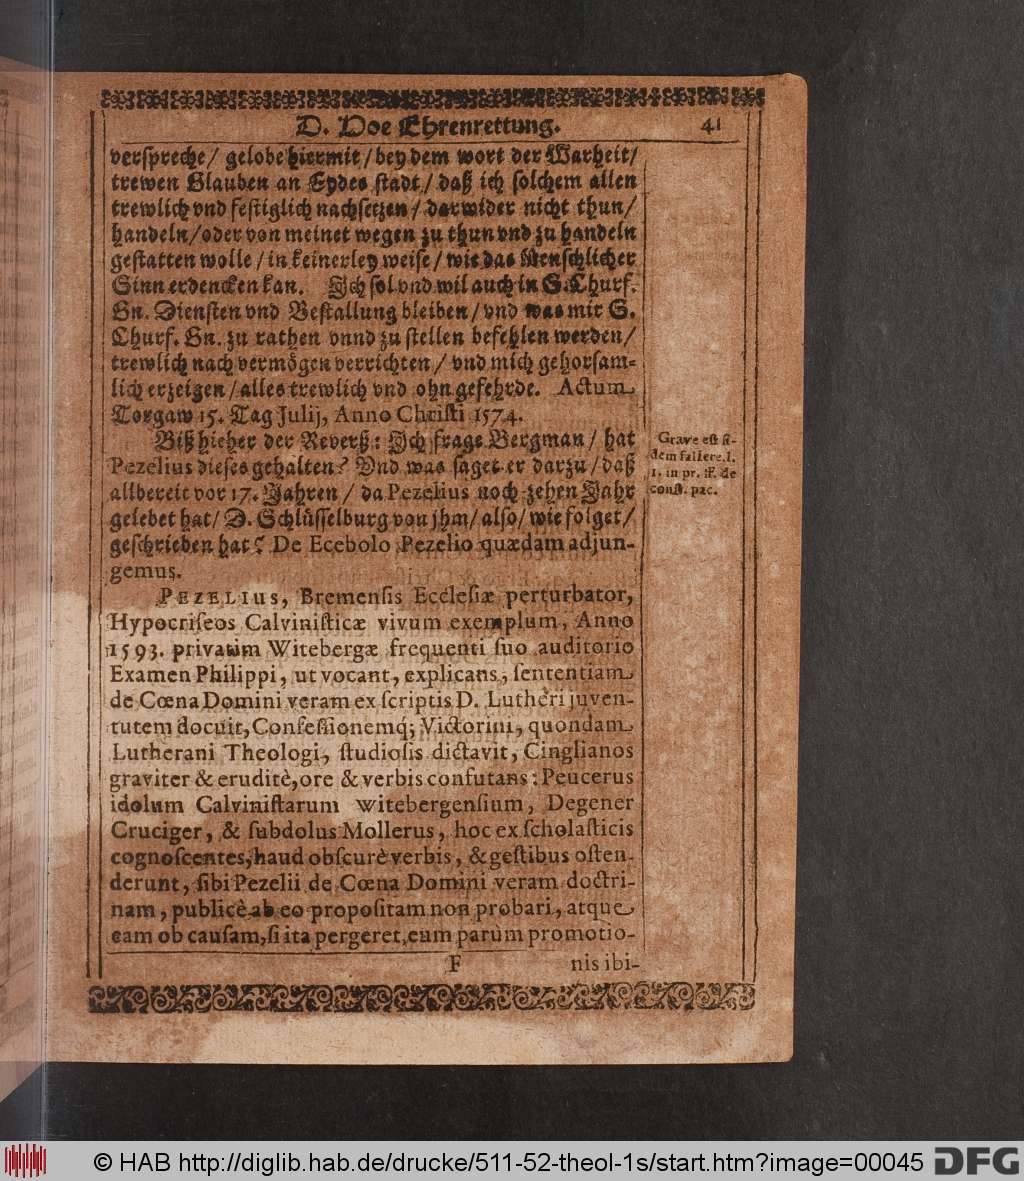 D. Hoe Ehrenrettung. 41
verspreche/ gelobe hiermit/ bey dem wort der Warheit/
trewen Glauben an Eydes stadt/ daß ich solchem allen
trewlich vnd festiglich nachsetzen/ darwider nicht thun/
handeln/ oder von meinet wegen zu thun vnd zu handeln
gestatten wolle/ in keinerley weise/ wie das Menschlicher
Sinn erdencken kan. Ich sol vnd wil auch in S. Churf.
Gn. Diensten vnd Bestallung bleiben/ vnd was mir S.
Churf. Gn. zu rathen vnnd zu stellen befehlen werden/
trewlich nach vermögen verrichten/ vnd mich gehorsam-
lich erzeigen/ alles trewlich vnd ohn gefehrde. Actum
Torgaw 15. Tag Julij, Anno Christi 1574.
Biß hieher der Reverß: Ich frage Bergman/ hat
Pezelius dieses gehalten? Vnd was saget er darzu/ daß
allbereit vor 17. Jahren/ da Pezelius noch zehen Jahr
gelebet hat/ D. Schlüsselburg von jhm/ also/ wie folget/
geschrieben hat? De Ecebolo Pezelio quædam adjun-
gemus.
Grave est fi-
dem fallere. l.
1. in pr. ff. de
const. pac.
PEZELIUS, Bremensis Ecclesiæ perturbator,
Hypocriseos Calvinisticæ vivum exemplum, Anno
1593. privatim Witebergæ frequenti suo auditorio
Examen Philippi, ut vocant, explicans, sententiam
de Cœna Domini veram ex scriptis D. Lutheri juven-
tutem docuit, Confessionemq́; Victorini, quondam
Lutherani Theologi, studiosis dictavit, Cinglianos
graviter & eruditè, ore & verbis confutans: Peucerus
idolum Calvinistarum Witebergensium, Degener
Cruciger, & subdolus Mollerus, hoc ex scholasticis
cognoscentes, haud obscurè verbis, & gestibus osten-
derunt, sibi Pezelii de Cœna Domini veram doctri-
nam, publicè ab eo propositam non probari, atque
eam ob causam, si ita pergeret, eum parùm promotio-
F nis ibi-
© HAB http://diglib.hab.de/drucke/511-52-theol-1s/start.htm?image=00045 DFG